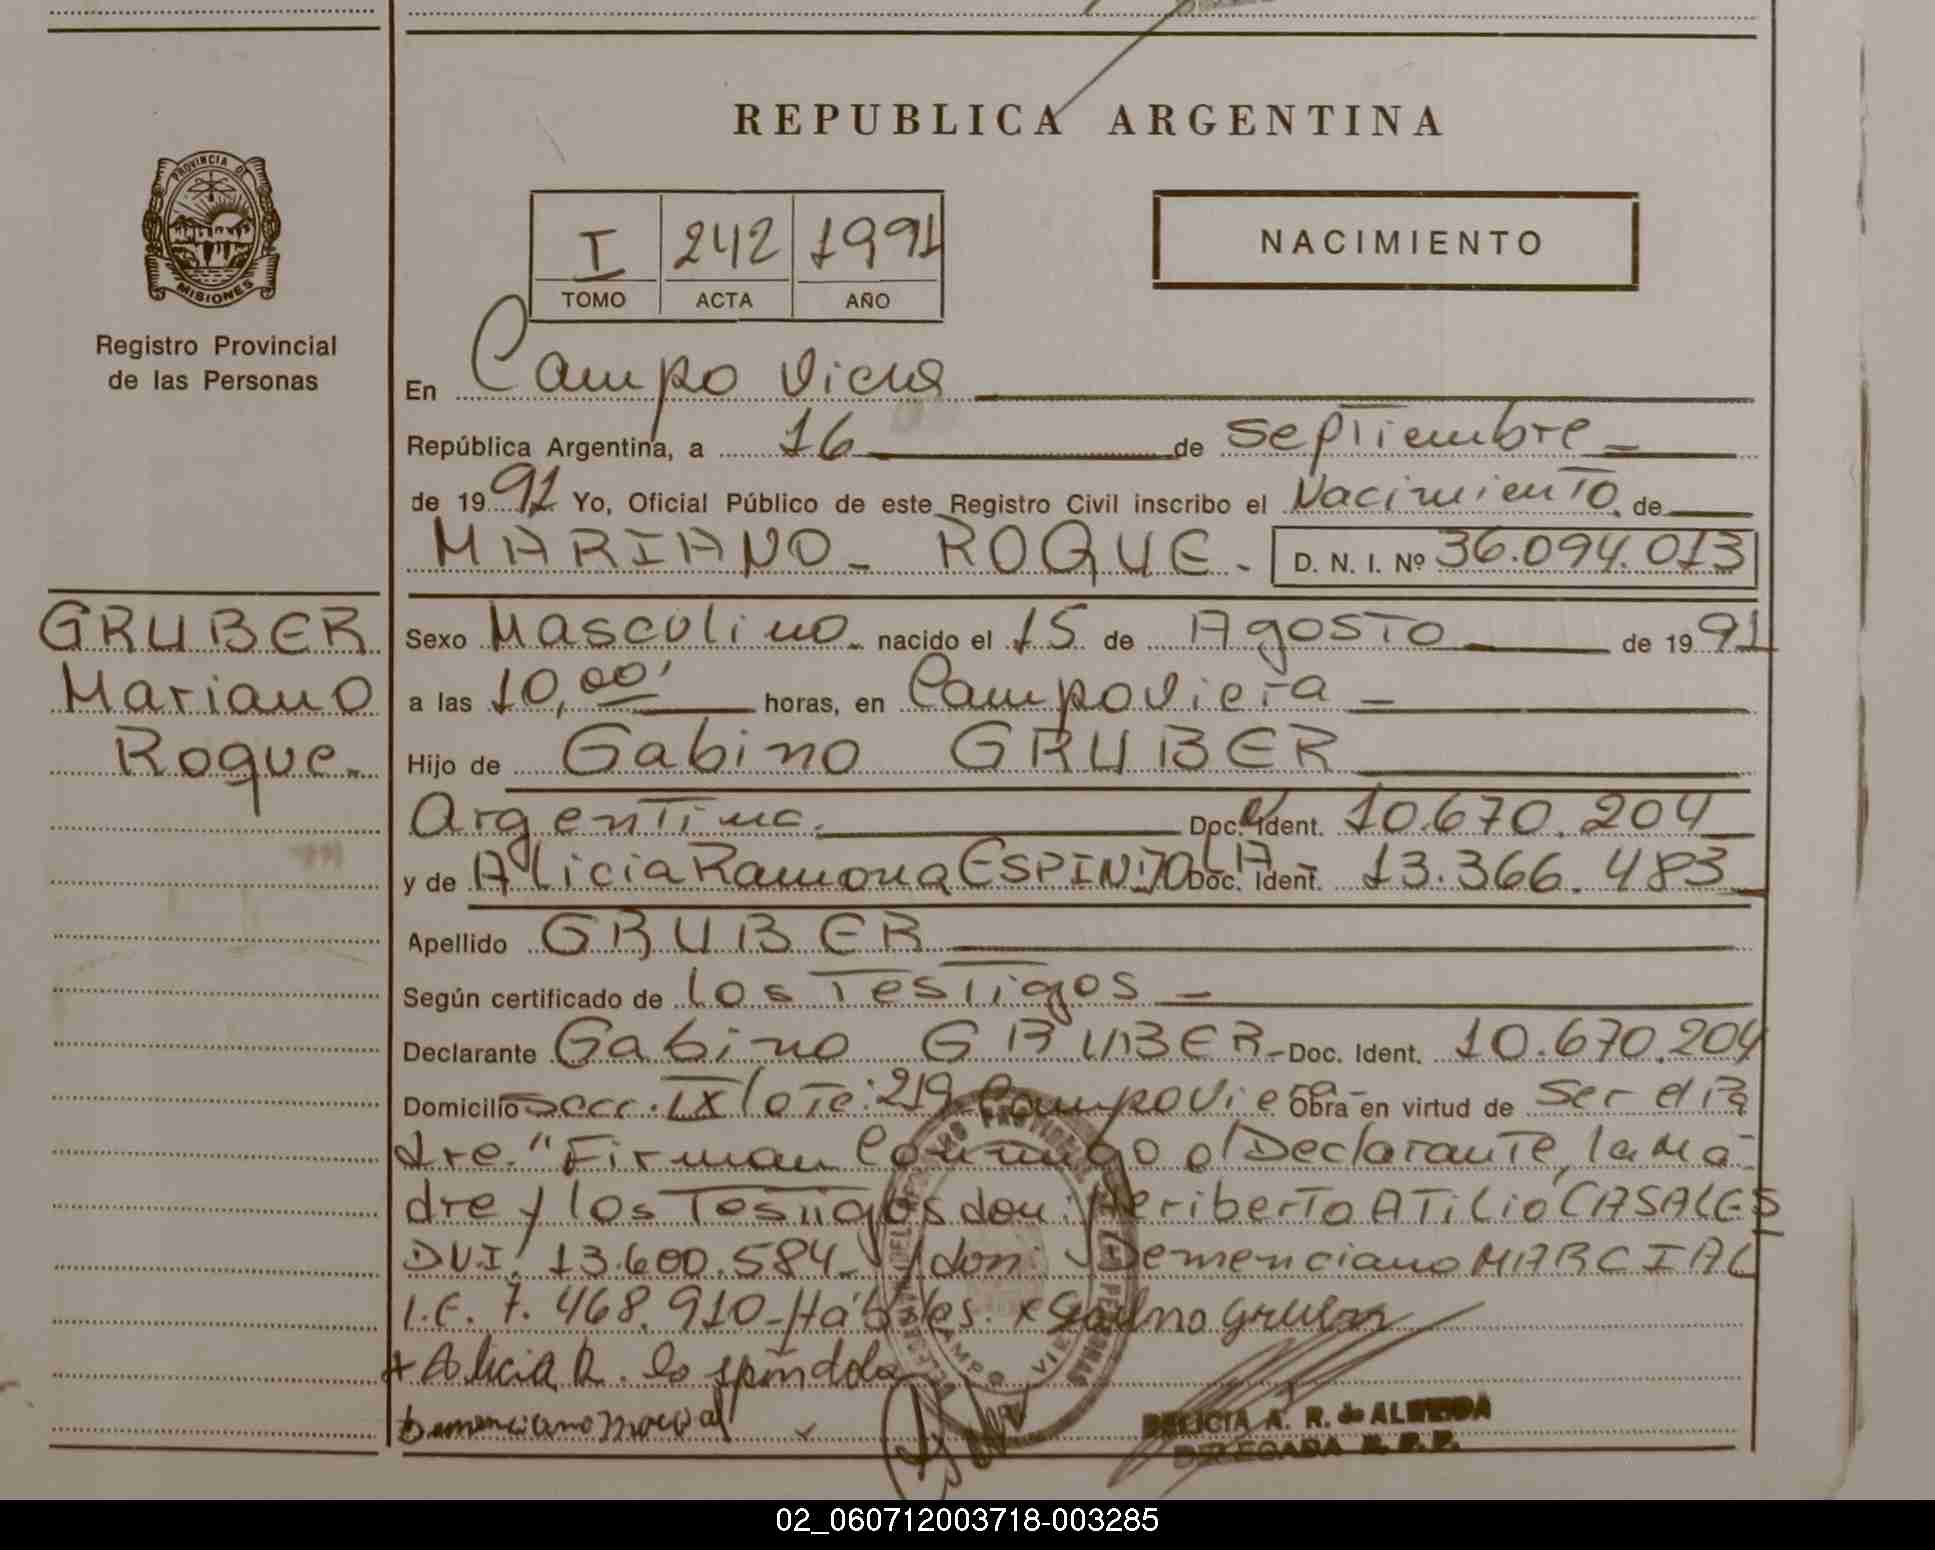 REPUBLICA ARGENTINA
PROVINCIA DE
MISIONES
Registro Provincial
de las Personas
I 242 1991
TOMO ACTA AÑO
NACIMIENTO
En Campo Viera
República Argentina, a 16 de septiembre
de 1991 Yo, Oficial Público de este Registro Civil inscribo el Nacimiento de
MARIANO - ROQUE - D. N. I. Nº 36.094.013
GRUBER
Mariano
Roque.
Sexo Masculino nacido el 15 de Agosto de 1991
a las 10,00' horas, en Campo Viera
Hijo de Gabino GRUBER
Argentina. Doc. Ident. 10.670.204
y de Alicia Ramona ESPINDOLA Doc. Ident. 13.366.483
Apellido GRUBER
Según certificado de los Testigos
Declarante Gabino GRUBER - Doc. Ident. 10.670.204
Domicilio Secc. IX lote: 219 Campo Viera Obra en virtud de ser el Pa
dre. "Firman conmigo el Declarante, la Ma-
dre y los Testigos don: Heriberto ATILIO CASALES
DNI. 13.600.584 y don: Demenciano MARCIAL
I.E. 7.468.910 - Hábiles. x Gabino Gruber
+ Alicia R. Espindola
Demenciano Marcial
DELICIA A. R. de ALMEIDA
DELEGADA R. P. P.
02_060712003718-003285